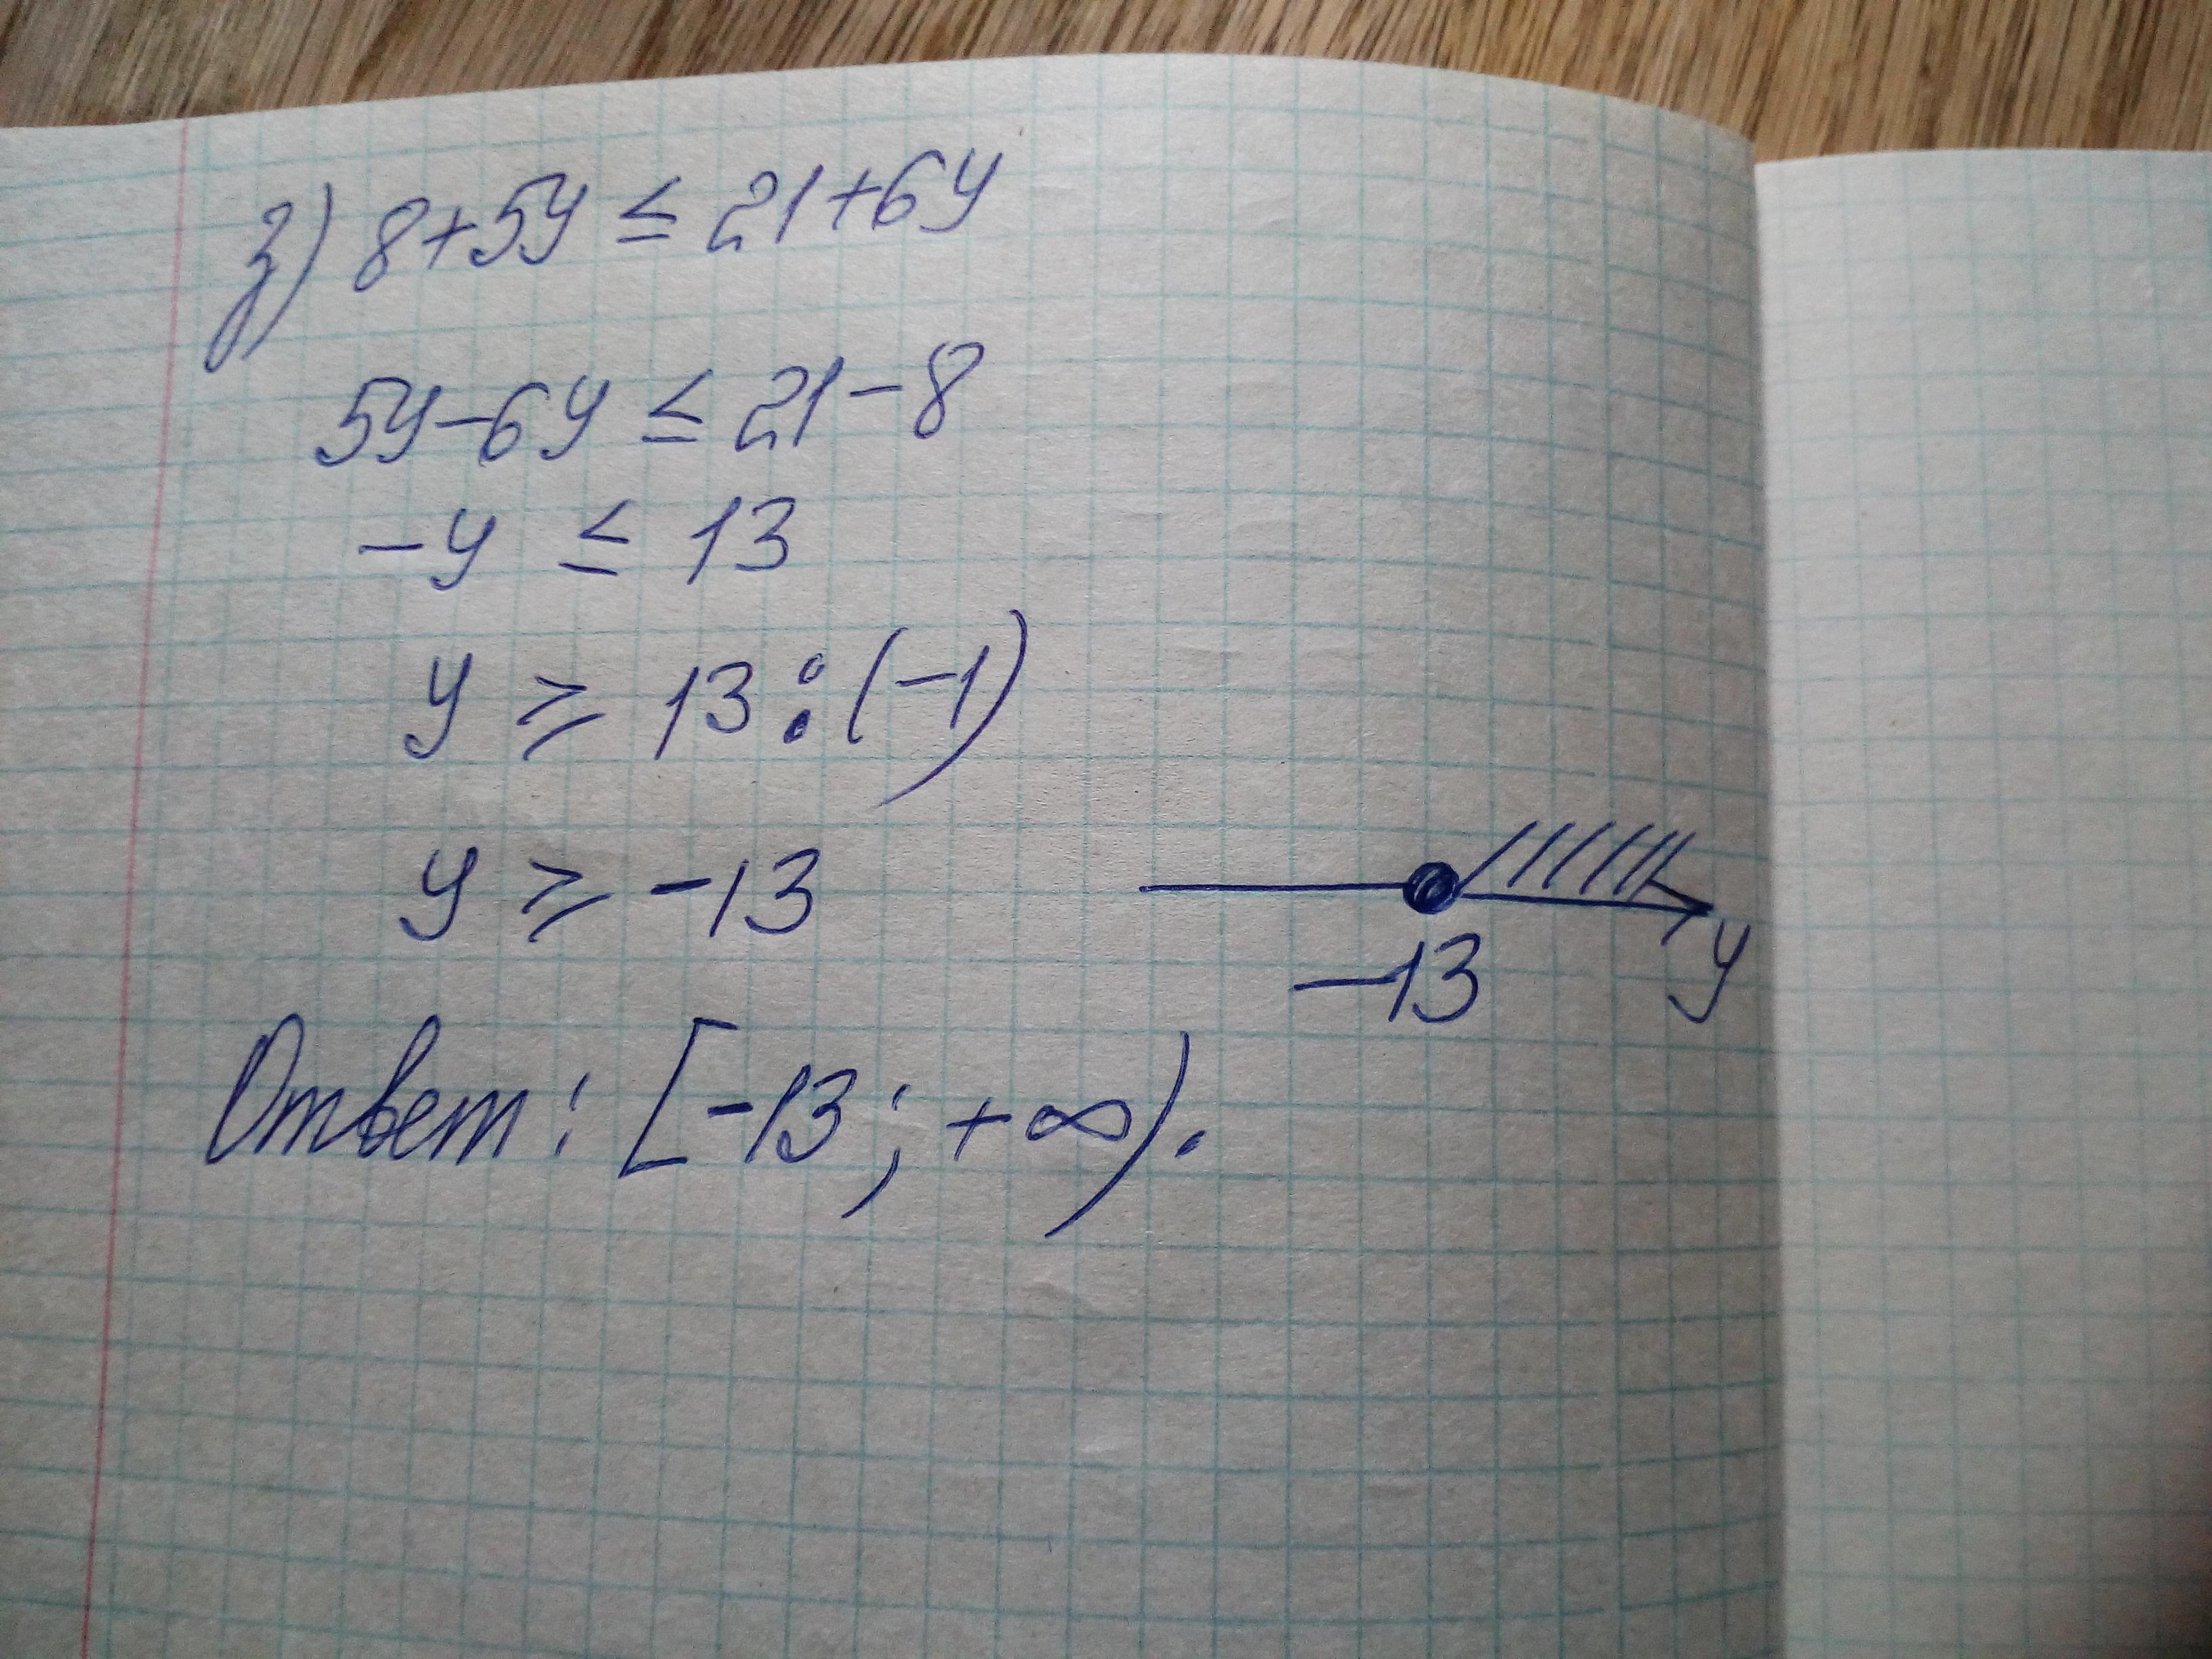 з) 8+5y ≤ 21+6y
5y-6y ≤ 21-8
-y ≤ 13
y ≥ 13:(-1)
y ≥ -13
-13 y
Ответ: [-13; +∞).